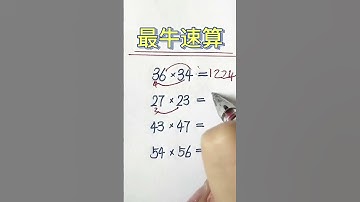 最牛速算
36×34=1224
27×23=
43×47=
54×56=